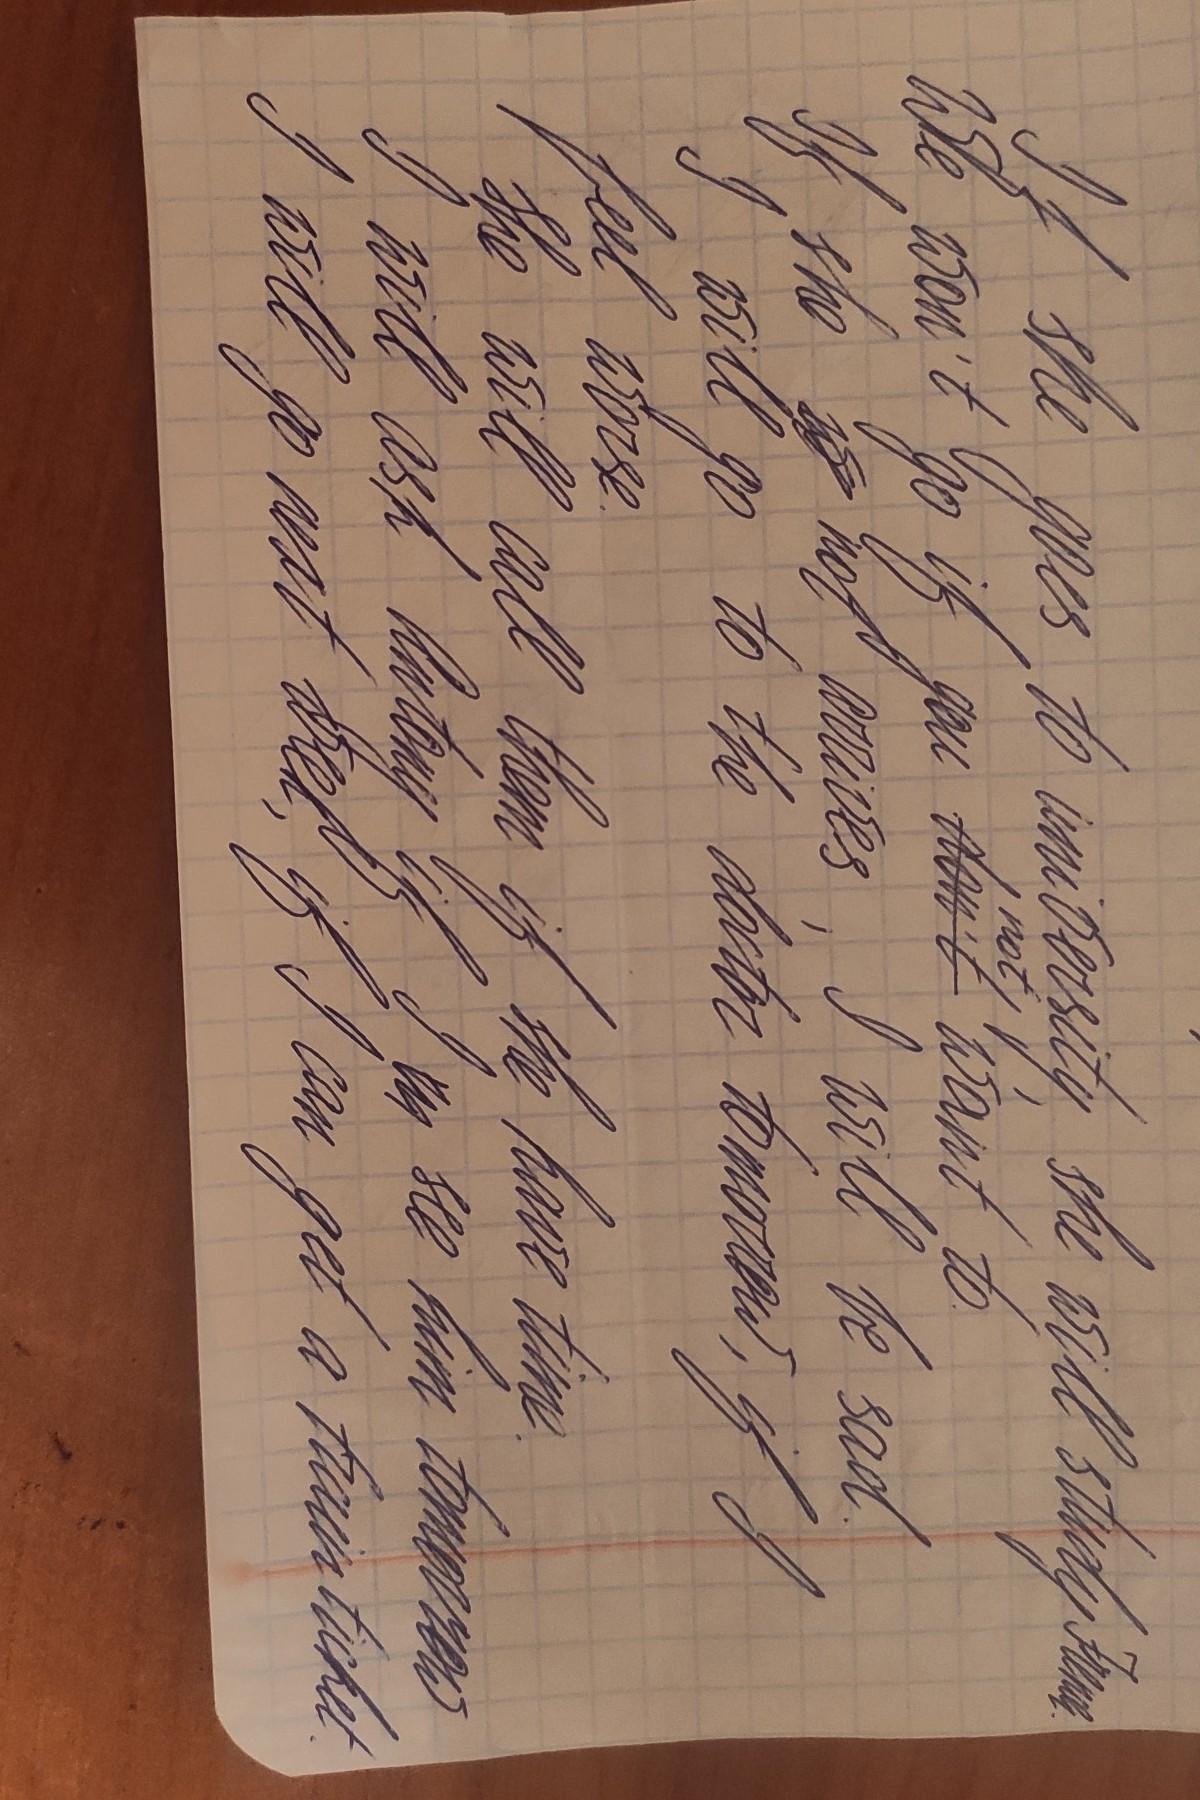 If she goes to university she will study France.
We won't go if you not want to.
If she not worries, I will be sad.
I will go to the doctor tomorrow, if I
feel worse.
She will call them if she have time.
I will ask history if I see him tomorrow
I will go next week, if I can get a train ticket.